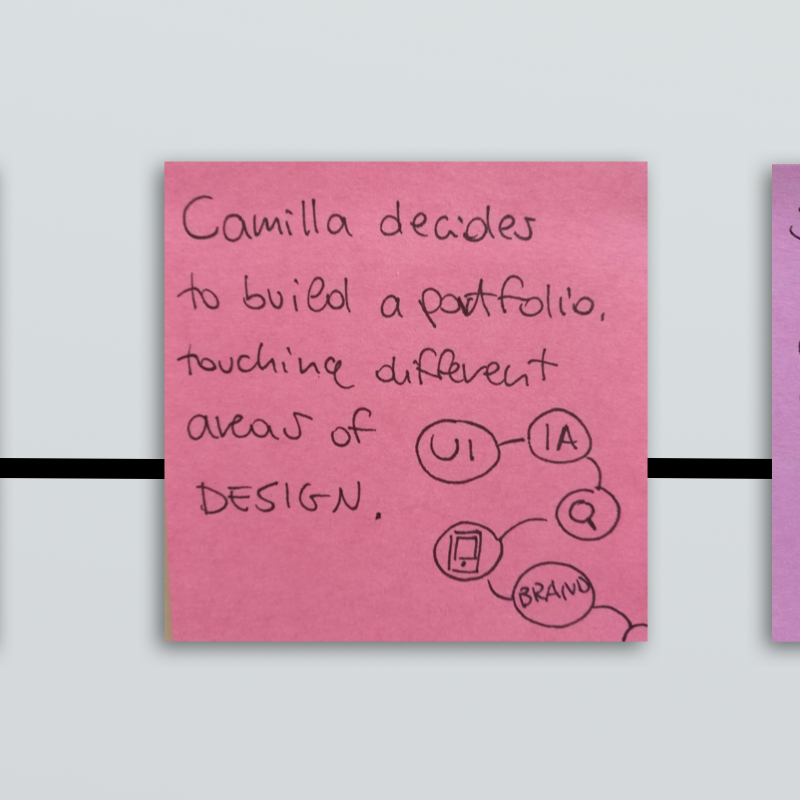 Camilla decides
to build a portfolio,
touching different
areas of
DESIGN.
UI
IA
BRAND